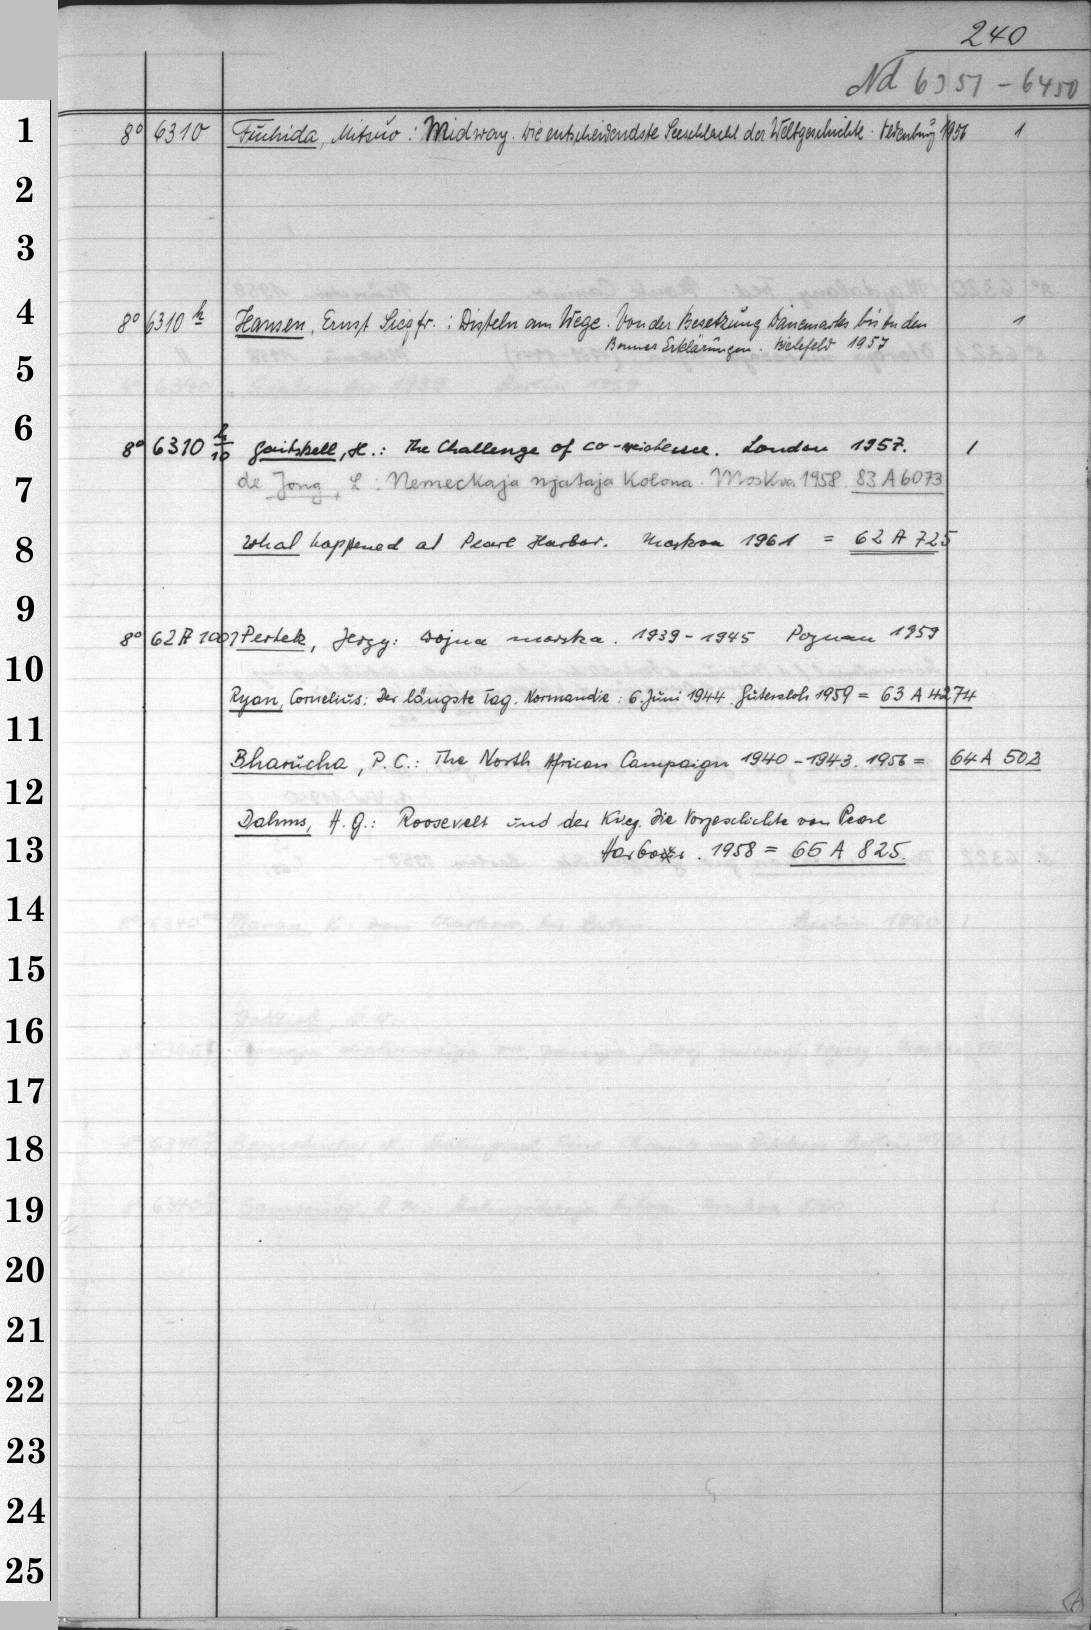 240
Nd 6351 - 6450
1 8° 6310 Fuchida, Mitsuo : Midway. Die entscheidendste Seeschlacht der Weltgeschichte. Oldenburg 1956 1
2
3
4 8° 6310 h Hansen, Ernst Siegfr. : Disteln am Wege. Von der Besetzung Dänemarks bis zu den 1
Bonner Erklärungen. Bielefeld 1957
5
6 8° 6310 h/10 Gaitskell, H.: The Challenge of co-existence. London 1957. 1
7 de Jong, L : Nemeckaja pjataja Kolona. Moskva 1958. 83 A 6073
8 What happened at Pearl Harbor. Moskva 1961 = 62 A 725
9 8° 62 A 1007 Pertek, Jerzy: Wojna morska. 1939-1945 Poznan 1959
10 Ryan, Cornelius: Der längste Tag. Normandie : 6. Juni 1944. Gütersloh 1959 = 63 A 4274
11 Bharucha, P.C.: The North African Campaign 1940-1943. 1956 = 64 A 502
12 Dahms, H.G.: Roosevelt und der Krieg. Die Vorgeschichte von Pearl
13 Harbor. 1958 = 65 A 825.
14
15
16
17
18
19
20
21
22
23
24
25